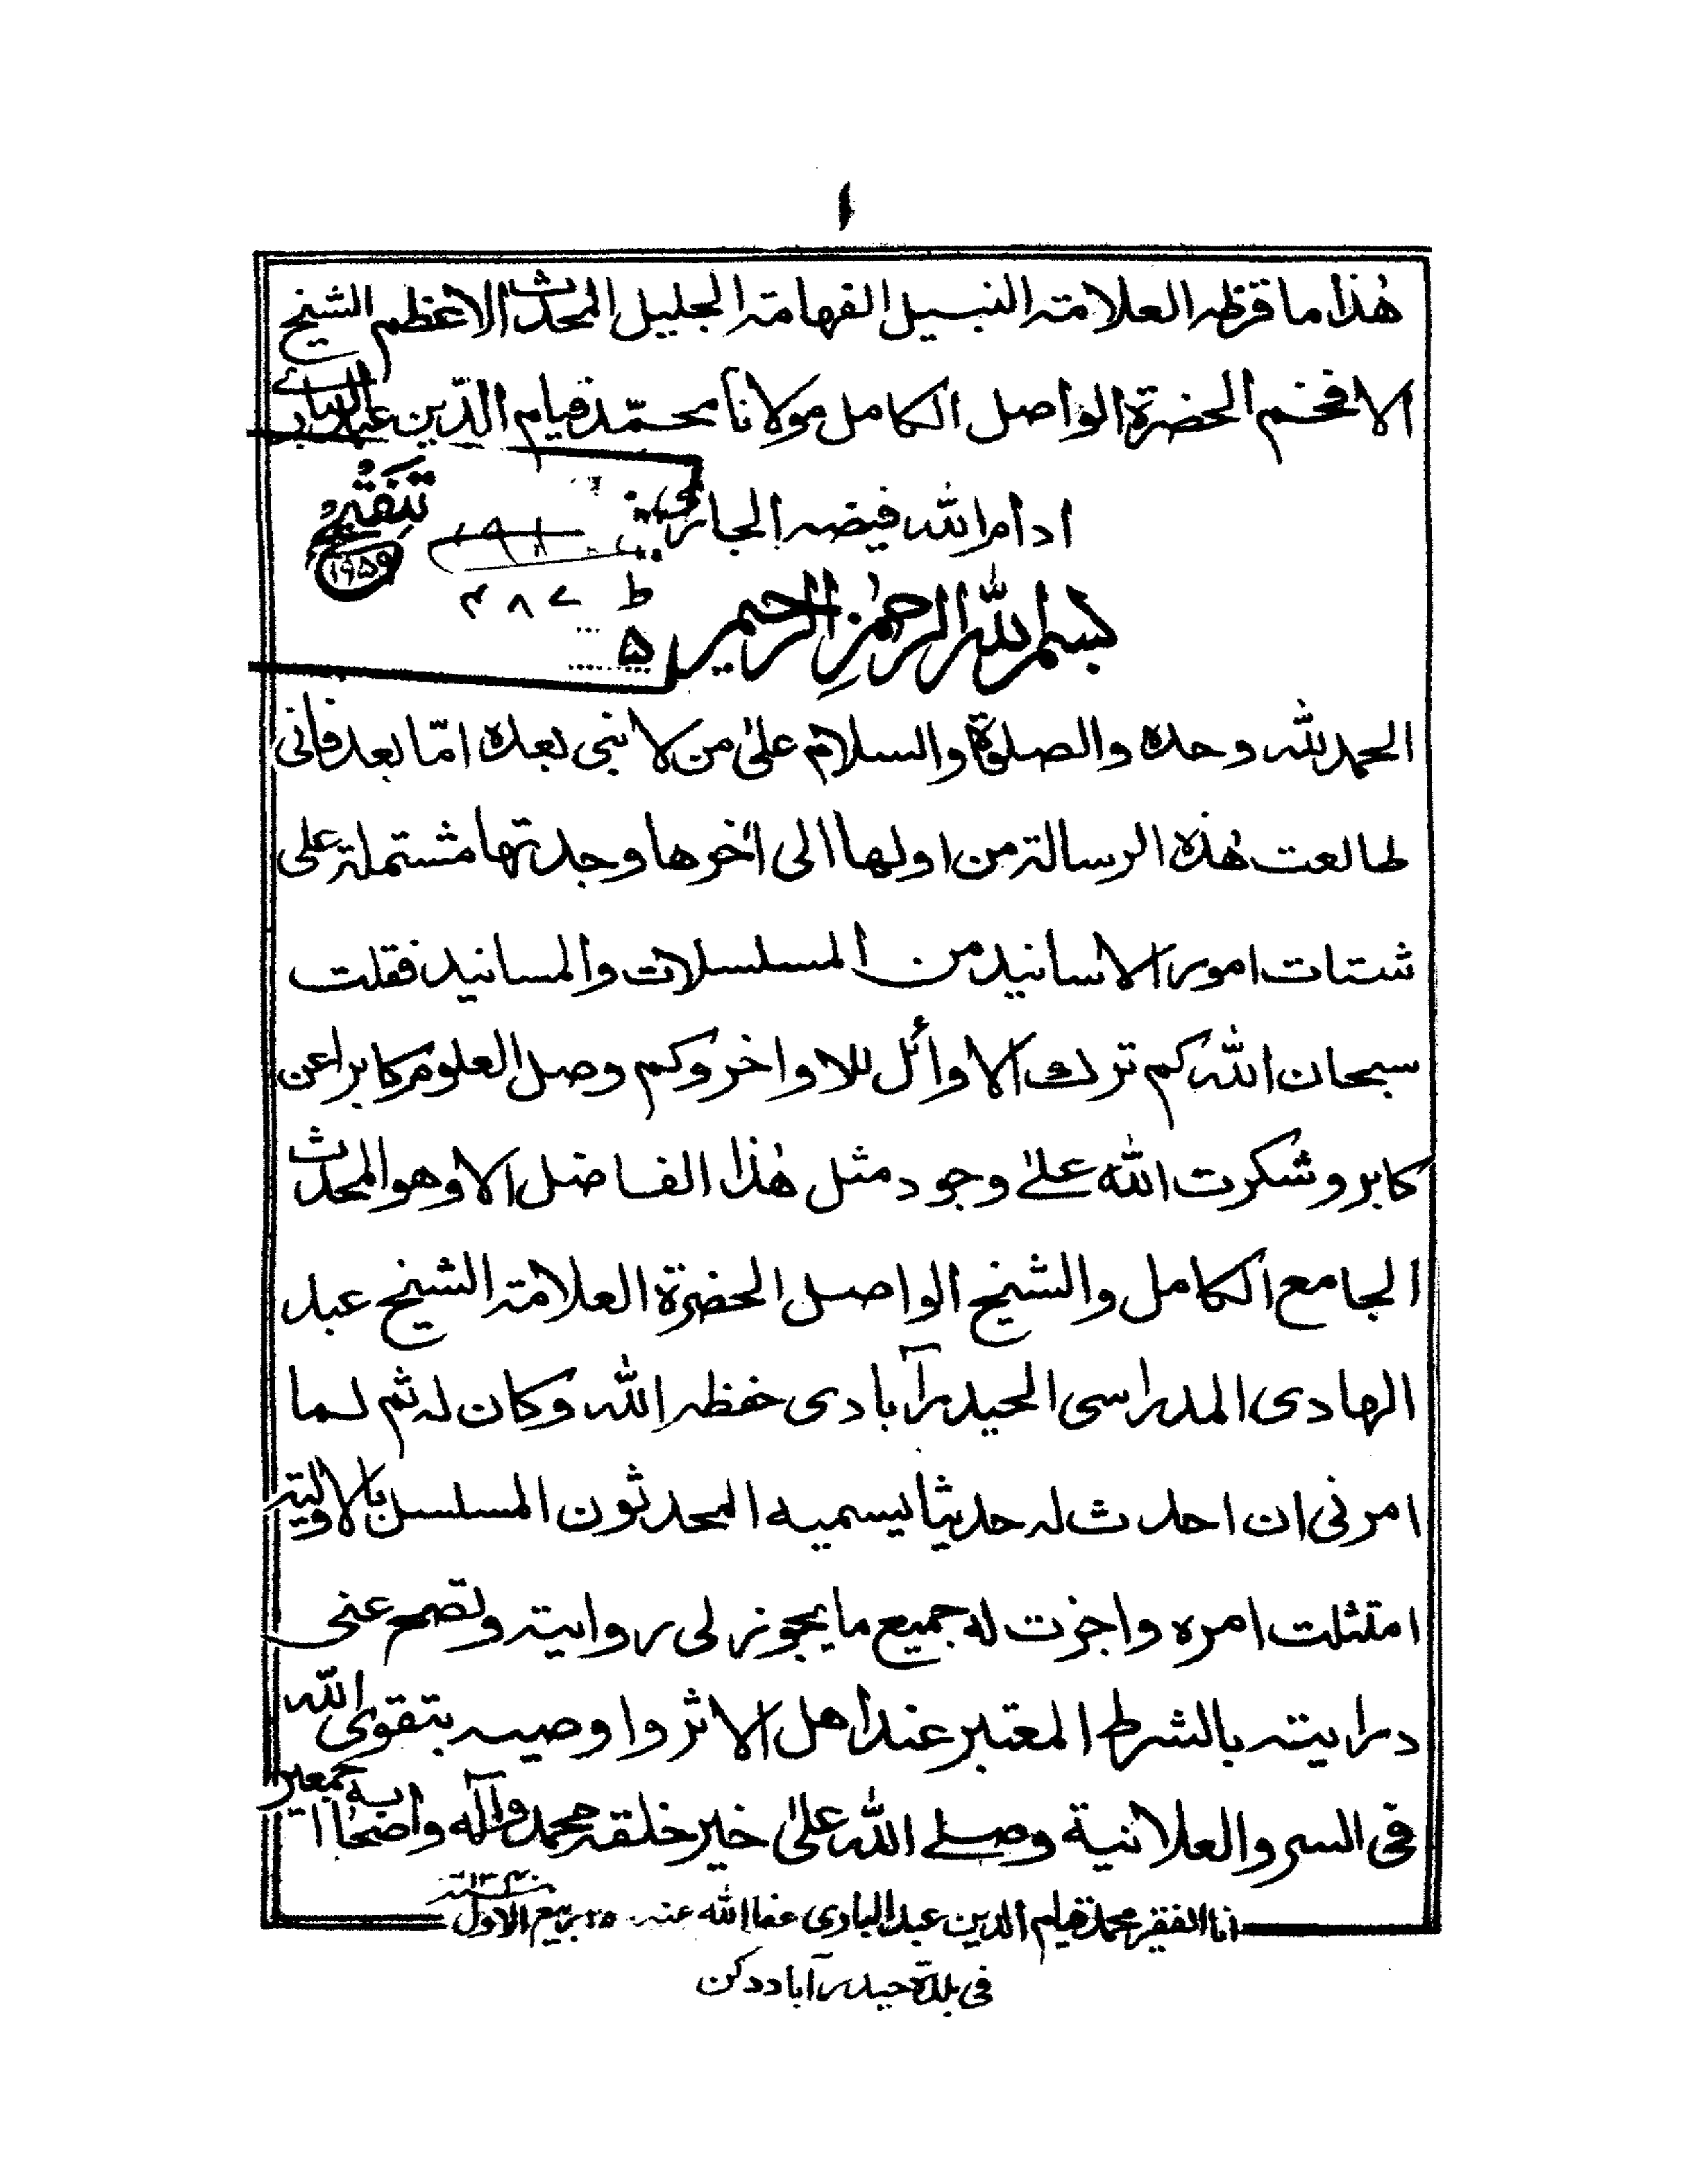 ١
هٰذا ما قرظہ العلامۃ النبیل الفهامۃ الجلیل المحدث الاعظم الشیخ
الافخم الحضرۃ الواصل الکامل مولانا محمّد قیام الدّین عبد الباری
ادام اللہ فیضہ الجاری
تنقیح
۱۹۵۹
ط ۴۸۷
۵
بسم اللہ الرحمٰن الرحیم
الحمد للہ وحدہ والصلوۃ والسلام علیٰ من لا نبی بعدہ امّا بعد فانی
طالعت هٰذہ الرسالۃ من اولها الی اٰخرها وجدتها مشتملۃ علی
شتات امور الاسانید من المسلسلات والمسانید فقلت
سبحان اللہ کم ترك الاوائل للاواخر وکم وصل العلوم کابرا عن
کابر وشکرت اللہ علےٰ وجود مثل هٰذا الفاضل الا وهو المحدث
الجامع الکامل والشیخ الواصل الحضرۃ العلامۃ الشیخ عبد
الهادی المدراسی الحیدرآبادی حفظہ اللہ وکان لہ ثم لما
امرنی ان احدث لہ حدیثا یسمیہ المحدثون المسلسل بالاولیۃ
امتثلت امرہ واجزت لہ جمیع ما یجوز لی روایتہ وتصح عنی
درایتہ بالشرط المعتبر عند اهل الاثر واوصیہ بتقوی اللہ
فی السر والعلانیۃ وصلے اللہ علیٰ خیر خلقہ محمد وآلہ واصحابہ اجمعین
انا الفقیر محمد قیام الدین عبد الباری عفا اللہ عنہ ۲۵ ربیع الاول
فی بلدۃ حیدرآباد دکن